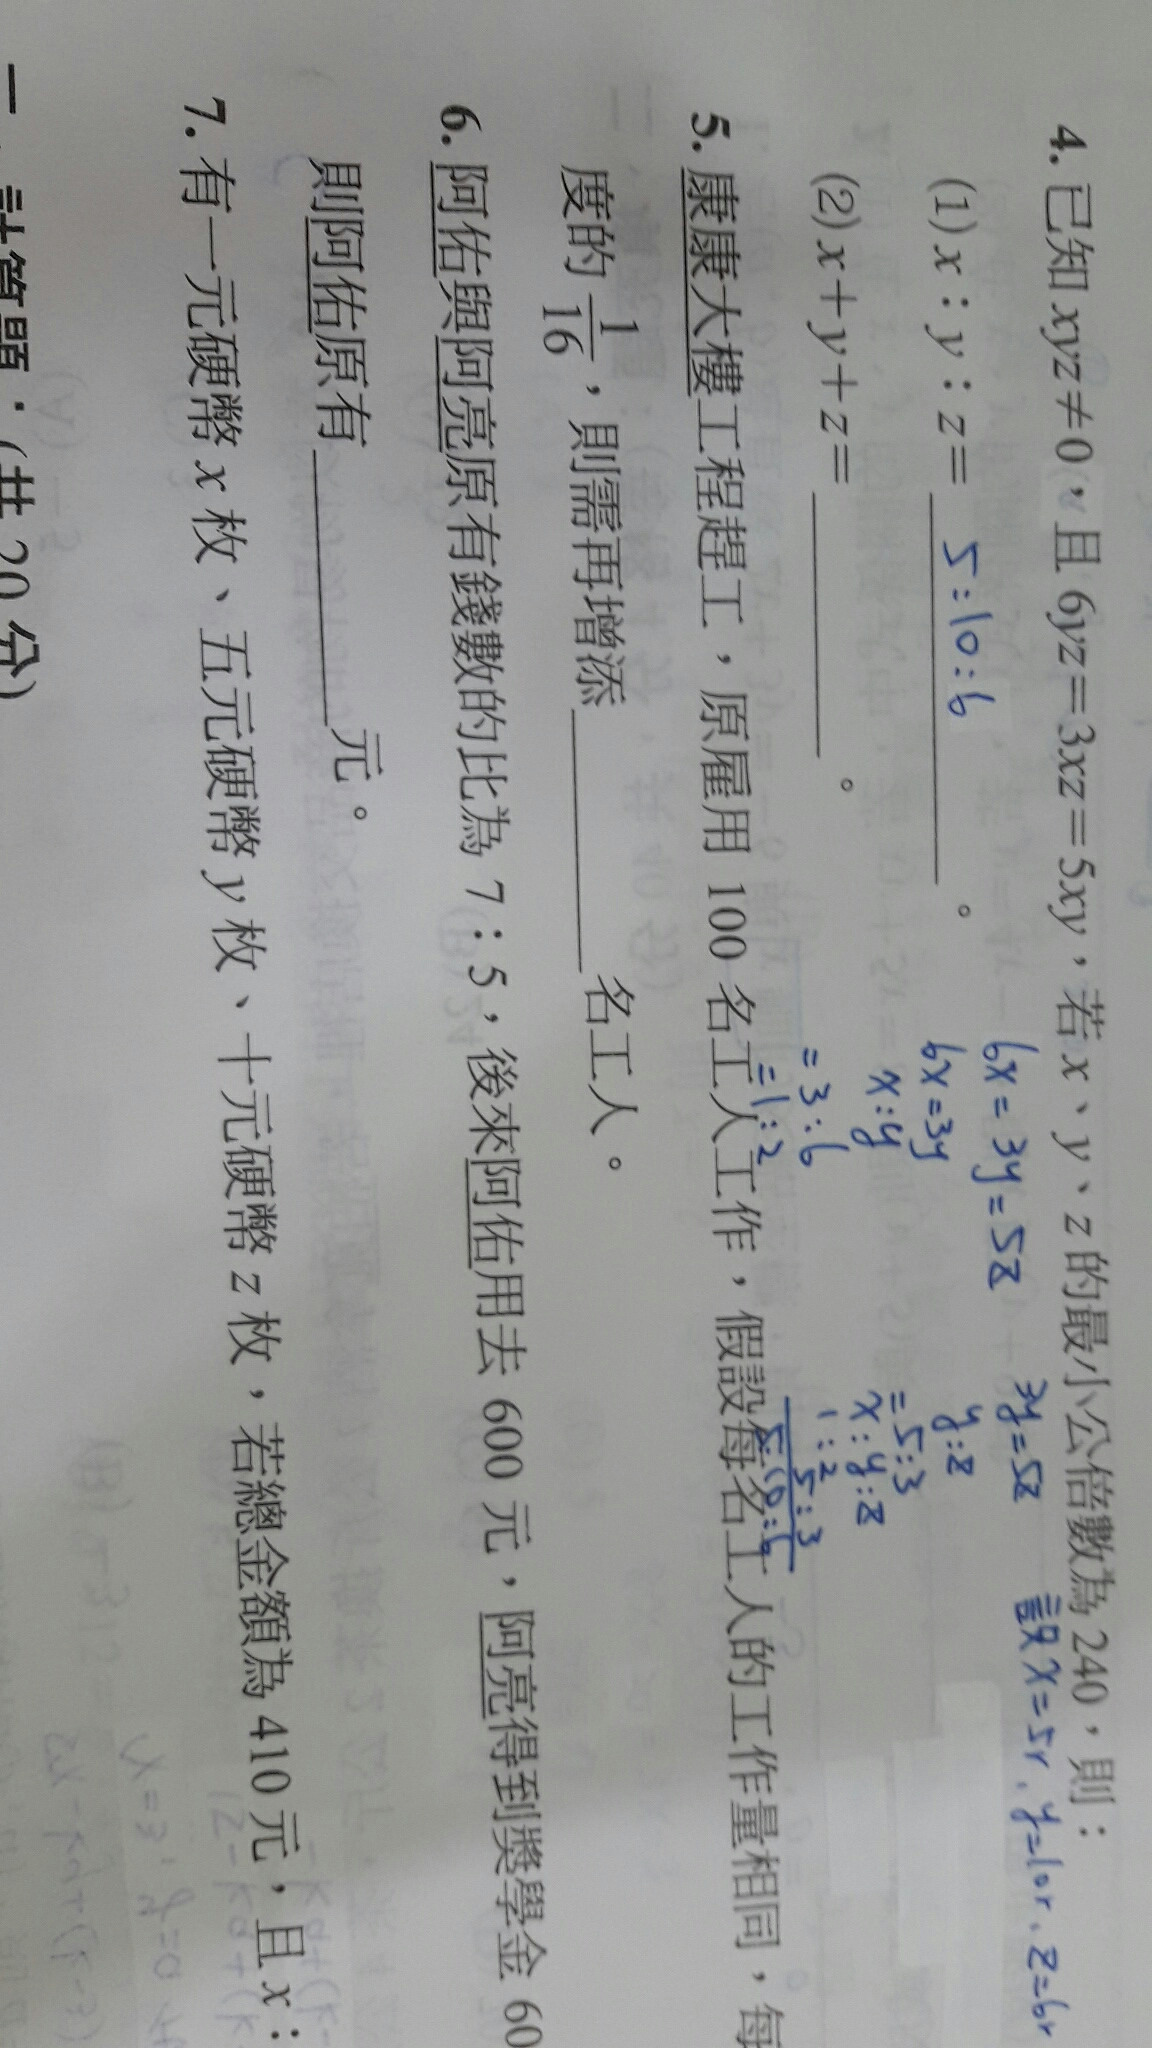 4. 已知 xyz≠0，且 6yz=3xz=5xy，若 x、y、z 的最小公倍數為 240，則：
6x=3y=5z
3y=5z
設 x=5r，y=10r，z=6r
(1) x：y：z= 5:10:6 。
6x=3y
x:y
=3:6
=1:2
y:z
=5:3
x:y:z
1:2
5:3
5:10:6
(2) x+y+z= 。
5. 康康大樓工程趕工，原雇用 100 名工人工作，假設每名工人的工作量相同，每
度的 1/16，則需再增添 名工人。
6. 阿佑與阿亮原有錢數的比為 7：5，後來阿佑用去 600 元，阿亮得到獎學金 60
則阿佑原有 元。
7. 有一元硬幣 x 枚、五元硬幣 y 枚、十元硬幣 z 枚，若總金額為 410 元，且 x：
計算題：(共 20 分)